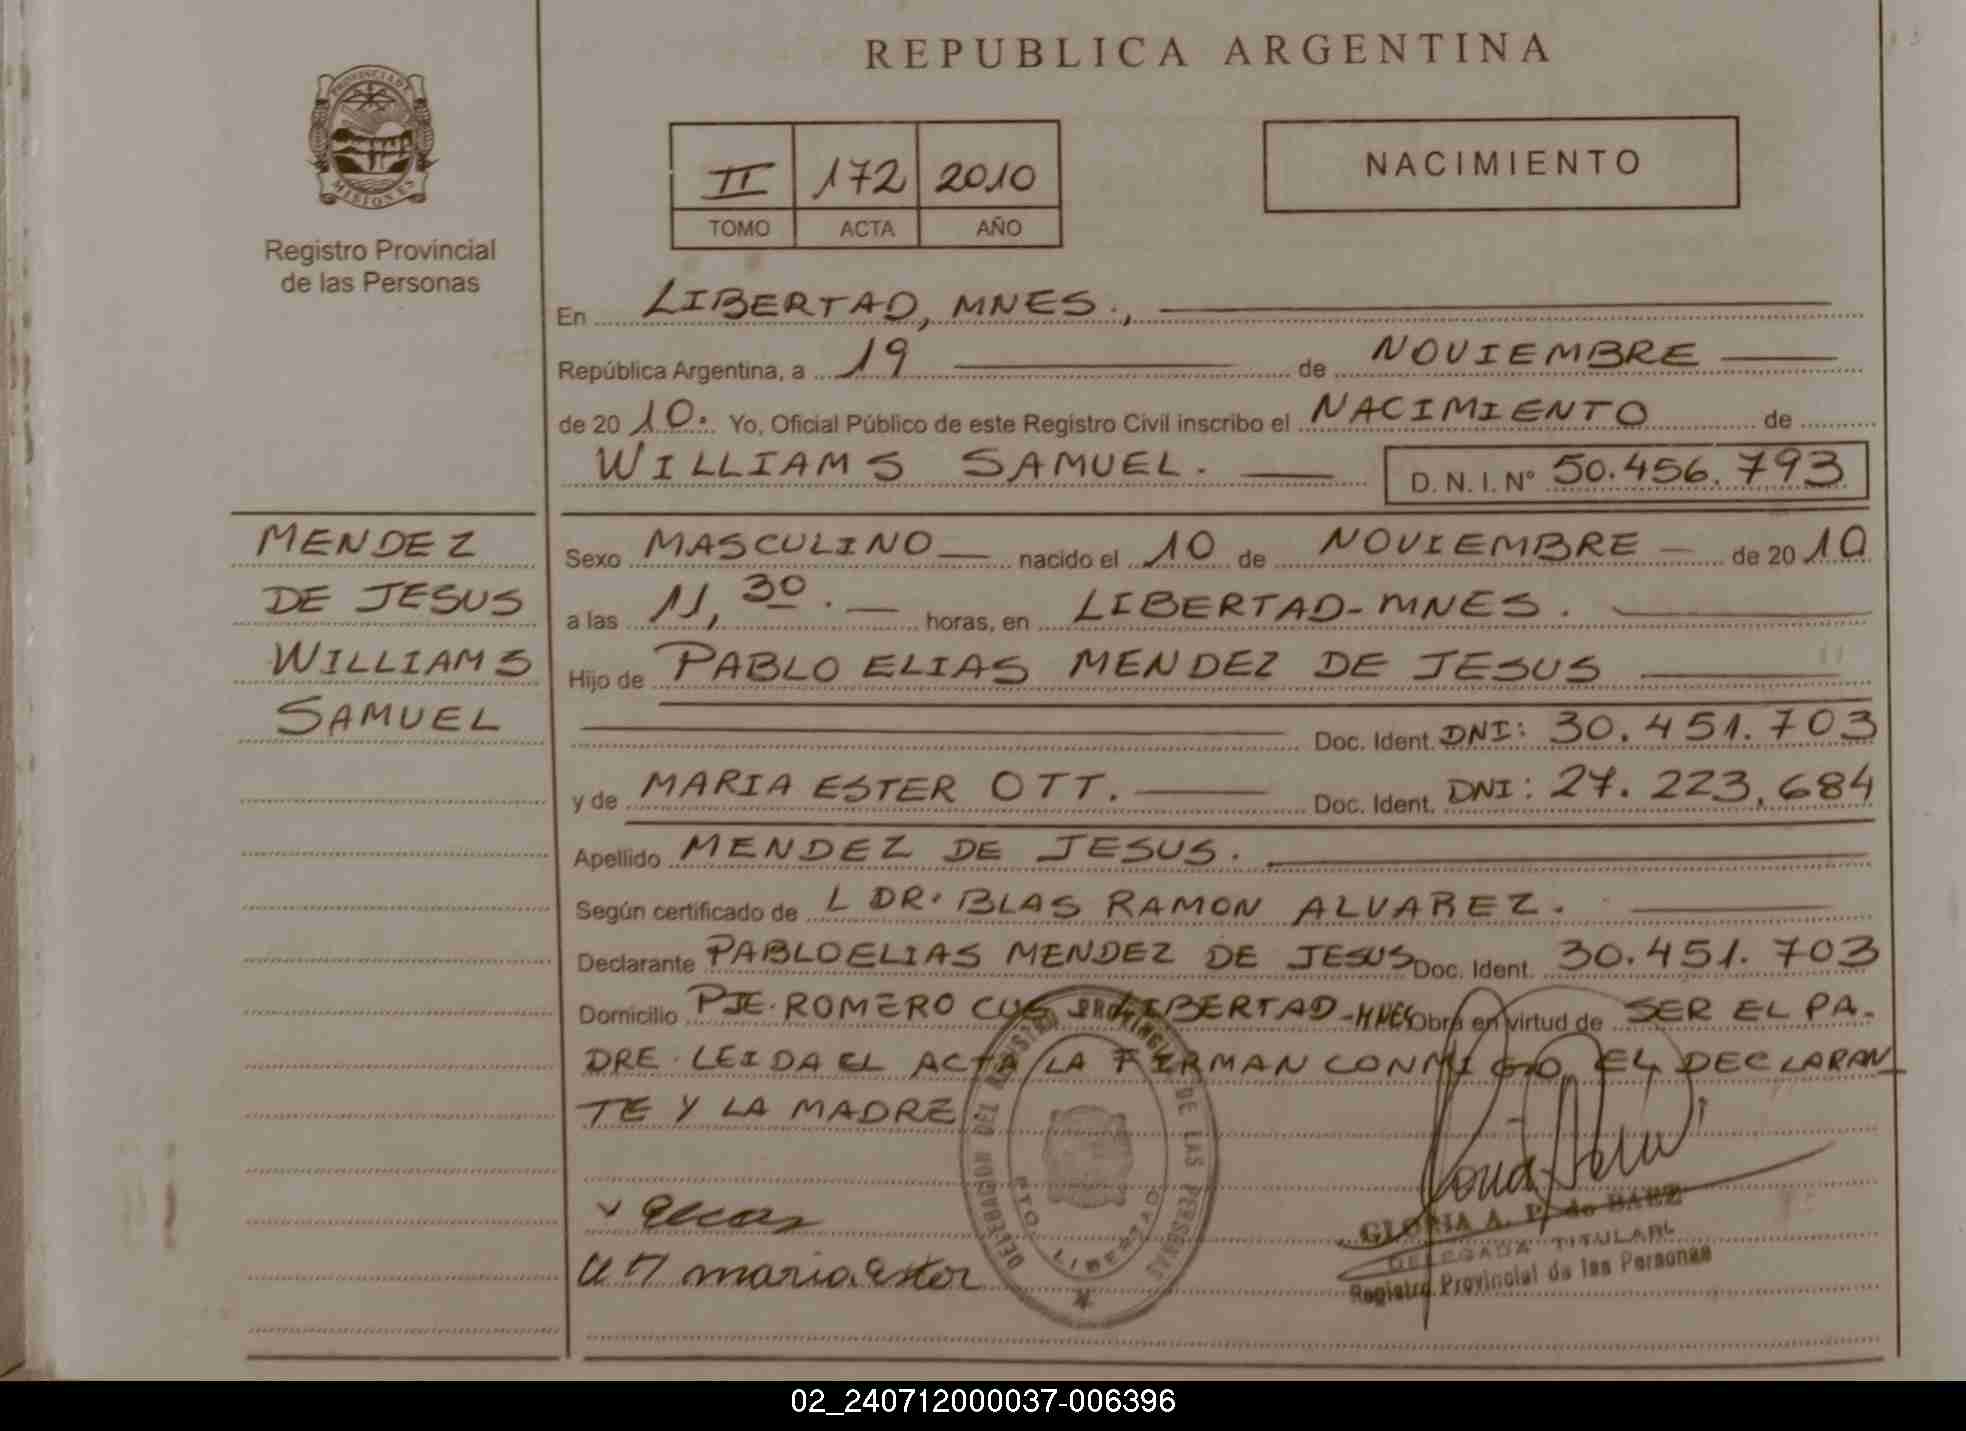 REPUBLICA ARGENTINA
PROVINCIA DE MISIONES
Registro Provincial
de las Personas
II 172 2010
TOMO ACTA AÑO
NACIMIENTO
En LIBERTAD, MNES.,
República Argentina, a 19 de NOVIEMBRE
de 2010. Yo, Oficial Público de este Registro Civil inscribo el NACIMIENTO de
WILLIAMS SAMUEL. D. N. I. Nº 50.456.793
MENDEZ
DE JESUS
WILLIAMS
SAMUEL
Sexo MASCULINO nacido el 10 de NOVIEMBRE de 2010
a las 11,30. horas, en LIBERTAD-MNES.
Hijo de PABLO ELIAS MENDEZ DE JESUS
Doc. Ident. DNI: 30.451.703
y de MARIA ESTER OTT. Doc. Ident. DNI: 27.223,684
Apellido MENDEZ DE JESUS.
Según certificado de L DR. BLAS RAMON ALVAREZ.
Declarante PABLO ELIAS MENDEZ DE JESUS Doc. Ident. 30.451.703
Domicilio PJE. ROMERO CUE LIBERTAD-MNES Obra en virtud de SER EL PA-
DRE. LEIDA EL ACTA LA FIRMAN CONMIGO EL DECLARAN
TE Y LA MADRE
DELEGACION DEL REGISTRO PROVINCIAL DE LAS PERSONAS
PTO. LIBERTAD
OTT maria ester
GLORIA A. P. de BAEZ
DELEGADA TITULAR
Registro Provincial de las Personas
02_240712000037-006396